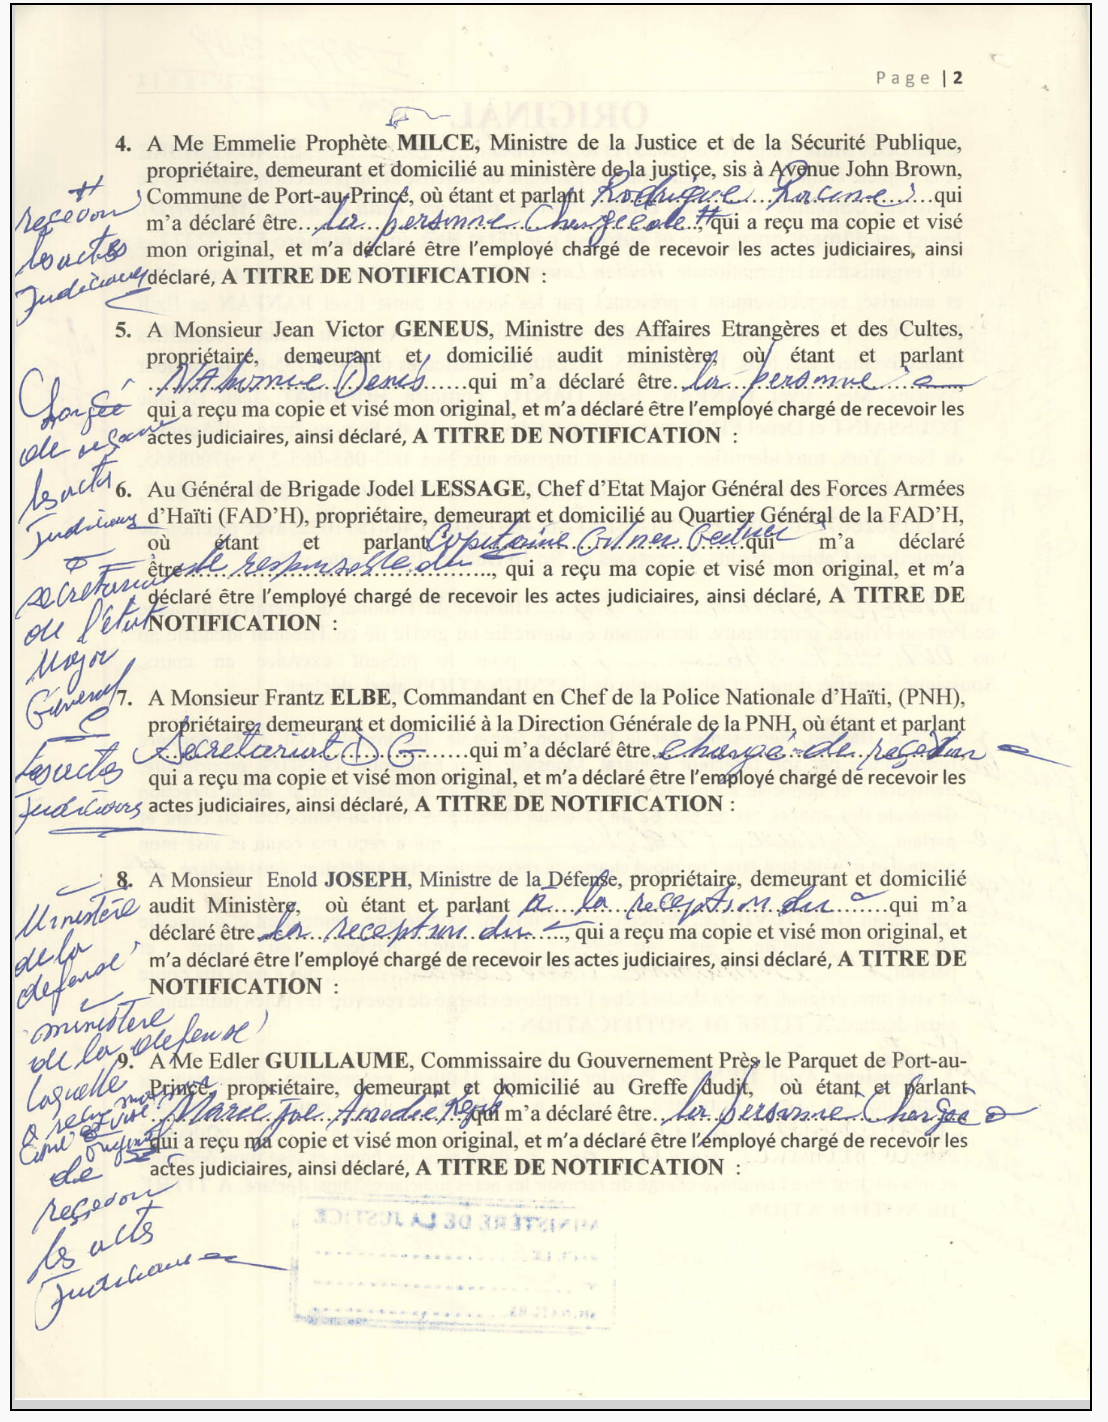 Page | 2
4. A Me Emmelie Prophète MILCE, Ministre de la Justice et de la Sécurité Publique,
propriétaire, demeurant et domicilié au ministère de la justice, sis à Avenue John Brown,
Commune de Port-au-Prince, où étant et parlant Rodrigue Racine qui
m'a déclaré être la personne Chargée de # qui a reçu ma copie et visé
mon original, et m'a déclaré être l'employé chargé de recevoir les actes judiciaires, ainsi
déclaré, A TITRE DE NOTIFICATION :
#
les actes
Judiciaires
5. A Monsieur Jean Victor GENEUS, Ministre des Affaires Etrangères et des Cultes,
propriétaire, demeurant et domicilié audit ministère, où étant et parlant
Denis......qui m'a déclaré être la personne
qui a reçu ma copie et visé mon original, et m'a déclaré être l'employé chargé de recevoir les
actes judiciaires, ainsi déclaré, A TITRE DE NOTIFICATION :
Chargée
de
les actes
Judiciaires
6. Au Général de Brigade Jodel LESSAGE, Chef d'Etat Major Général des Forces Armées
d'Haïti (FAD'H), propriétaire, demeurant et domicilié au Quartier Général de la FAD'H,
où étant et parlant Capitaine qui m'a déclaré
être le responsable du ......, qui a reçu ma copie et visé mon original, et m'a
déclaré être l'employé chargé de recevoir les actes judiciaires, ainsi déclaré, A TITRE DE
NOTIFICATION :
secrétariat
de l'état
Major
Général
7. A Monsieur Frantz ELBE, Commandant en Chef de la Police Nationale d'Haïti, (PNH),
propriétaire, demeurant et domicilié à la Direction Générale de la PNH, où étant et parlant
Secretariat D G ......qui m'a déclaré être chargé de
qui a reçu ma copie et visé mon original, et m'a déclaré être l'employé chargé de recevoir les
actes judiciaires, ainsi déclaré, A TITRE DE NOTIFICATION :
les actes
Judiciaires
8. A Monsieur Enold JOSEPH, Ministre de la Défense, propriétaire, demeurant et domicilié
audit Ministère, où étant et parlant à la reception du qui m'a
déclaré être la reception du ......, qui a reçu ma copie et visé mon original, et
m'a déclaré être l'employé chargé de recevoir les actes judiciaires, ainsi déclaré, A TITRE DE
NOTIFICATION :
Ministère
de la
defense
ministère
de la defense
9. A Me Edler GUILLAUME, Commissaire du Gouvernement Près le Parquet de Port-au-
Prince, propriétaire, demeurant et domicilié au Greffe dudit, où étant et parlant
Marie qui m'a déclaré être la personne Chargée
qui a reçu ma copie et visé mon original, et m'a déclaré être l'employé chargé de recevoir les
actes judiciaires, ainsi déclaré, A TITRE DE NOTIFICATION :
laquelle
de
les actes
Judiciaires